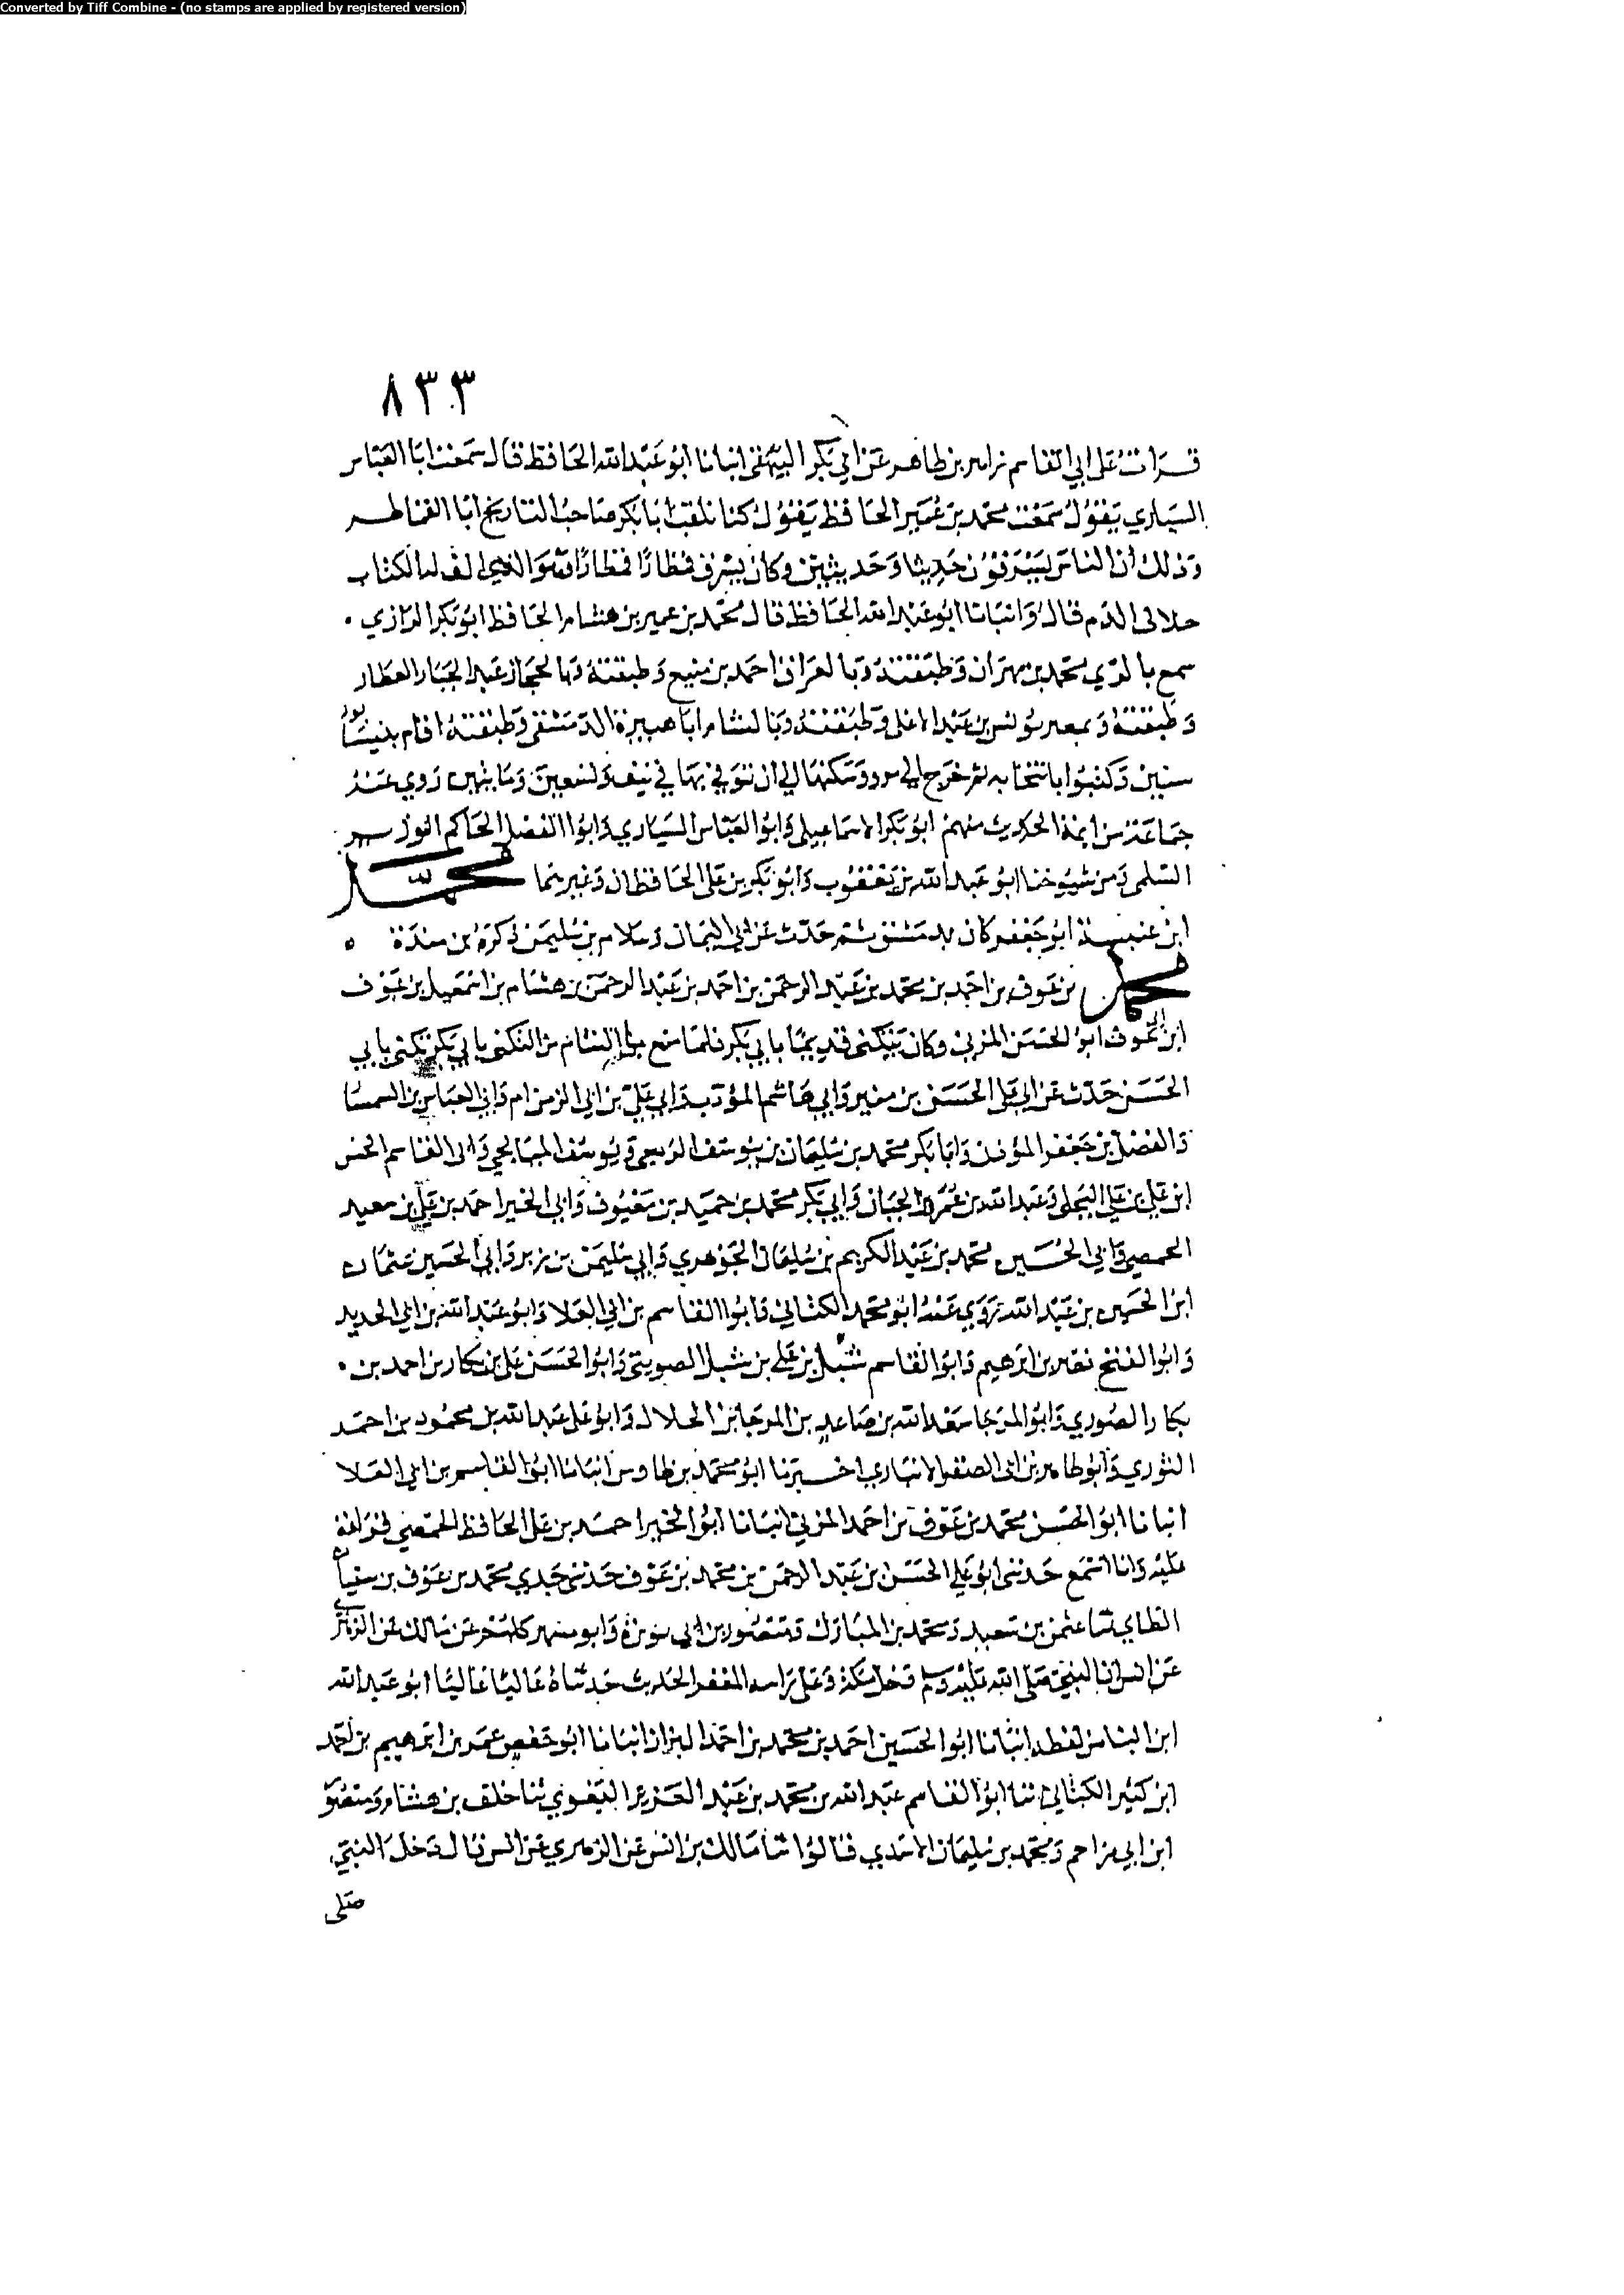 Converted by Tiff Combine - (no stamps are applied by registered version)
٨٣٣
قرات على ابي القاسم زاهر بن طاهر عن ابي بكر البيهقي انبانا ابو عبد الله الحافظ قال سمعت ابا العباس
السياري يقول سمعت محمد بن عمير الحافظ يقول كنا نلقب ابا بكر صاحب التاريخ ابا القماطر
وذلك ان الناس يسرقون حديثا وحديثين وكان يسرق قمطارا قمطارا الكتاب
قال وانبانا ابو عبد الله الحافظ قال محمد بن عمير بن هشام الحافظ ابو بكر الرازي
سمع بالري محمد بن مهران وطبقته وبالعراق احمد بن منيع وطبقته وبالحجاز عبد الجبار العطار
وطبقته وبمصر يونس بن عبد الاعلى وطبقته وبالشام ابا هبيرة الدمشقي وطبقته اقام بنيسابور
سنين وكتبوا بانتخابه ثم خرج الى مرو وسكنها الى ان توفي بها في نيف وتسعين ومايتين روى عنه
جماعة من ايمة الحديث منهم ابو بكر الاسماعيلي وابو العباس السياري وابو الفضل الحاكم الوزير
السلمي ومن شيوخنا ابو عبد الله بن يعقوب وابو بكر بن علي الحافظان وغيرهما محمد
ابن عنبسة ابو جعفر كان بدمشق حدث عن ابي اليمان وسلام بن سليمن ذكره ابن مندة ه
محمد بن عوف بن احمد بن محمد بن عبد الرحمن بن احمد بن عبد الرحمن بن هشام بن اسمعيل بن عوف
ابن عوف ابو الحسن المزني وكان يتكنى قديما بابي بكر فلما منع الشام من التكني بابي بكر تكنى بابي
الحسن حدث عن ابي علي الحسن بن منير وابي هاشم المؤدب وابي علي بن ابي الزمزام وابي العباس بن السمسار
والفضل بن جعفر المؤذن وابا بكر محمد بن سليمان بن يوسف الربعي ويوسف الميانجي وابي القاسم الحسن
ابن علي بن علي البجلي وعبد الله بن عمر الجبان وابي بكر محمد بن حميد بن معيوف وابي الخير احمد بن علي بن سعيد
الحمصي وابي الحسين محمد بن عبد الكريم بن سليمان الجوهري وابي سليمن بن زبر وابي الحسين عثمان
ابن الحسين بن عبد الله روى عنه ابو محمد الكتاني وابو القاسم بن ابي العلا وابو عبد الله بن ابي الحديد
وابو الفتح نصر بن ابرهيم وابو القاسم شبل بن علي بن شبل الصويتي وابو الحسن علي بن بكار بن احمد بن
بكار الصوري وابو المرجا سعد الله بن صاعد بن المرجا بن الخلال وابو علي عبد الله بن محمود بن احمد
وابو طاهر بن ابي الصقر الانباري اخبرنا ابو محمد بن طاوس انبانا ابو القاسم بن ابي العلا
انبانا ابو الحسن محمد بن عوف بن احمد المزني انبانا ابو الخير احمد بن علي الحافظ الحمصي قراة
عليه وانا اسمع حدثني ابو علي الحسن بن عبد الرحمن بن محمد بن عوف حدثني جدي محمد بن عوف بن سفيان
الطاي ثنا عثمن بن سعيد ومحمد بن المبارك ومنصور بن ابي نويرة وابو مسهر كلهم عن مالك عن الزهري
عن انس ان النبي صلى الله عليه وسلم دخل مكة وعلى راسه المغفر الحديث حدثناه عاليا عاليا ابو عبد الله
ابن البنا لفظا انبانا ابو الحسين احمد بن محمد بن احمد البزاز انبانا ابو حفص عمر بن ابرهيم بن احمد
ابن كثير الكتاني ثنا ابو القاسم عبد الله بن محمد بن عبد العزيز البغوي ثنا خلف بن هشام ومنصور
ابن ابي مزاحم ومحمد بن سليمان الاسدي قالوا ثنا مالك بن انس عن الزهري عن انس قال دخل النبي
صلى